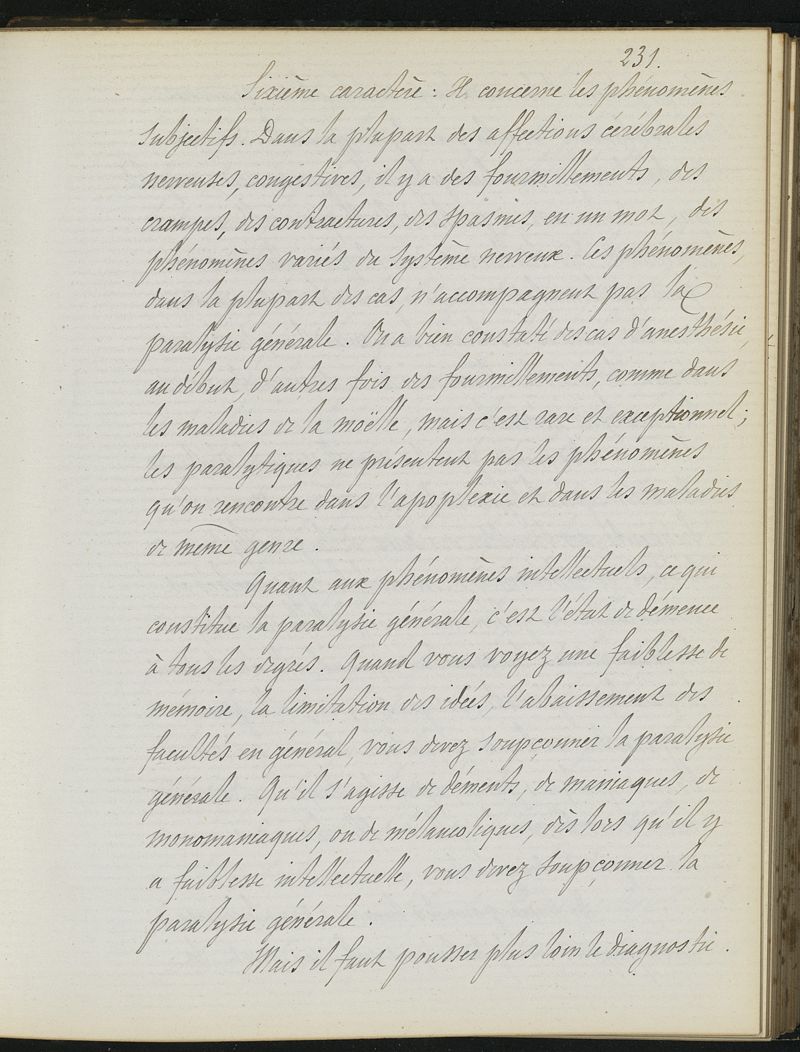 231.
Sixième caractère : Il concerne les phénomènes
subjectifs. Dans la plupart des affections cérébrales
nerveuses, congestives, il y a des fourmillements, des
crampes, des contractures, des spasmes, en un mot, des
phénomènes variés du système nerveux. Ces phénomènes,
dans la plupart des cas, n'accompagnent pas la
paralysie générale. On a bien constaté des cas d'anesthésie,
au début, d'autres fois des fourmillements, comme dans
les maladies de la moëlle, mais c'est rare et exceptionnel;
les paralytiques ne présentent pas les phénomènes
qu'on rencontre dans l'apoplexie et dans les maladies
de même genre.
Quant aux phénomènes intellectuels, ce qui
constitue la paralysie générale, c'est l'état de démence
à tous les degrés. Quand vous voyez une faiblesse de
mémoire, la limitation des idées, l'abaissement des
facultés en général, vous devez soupçonner la paralysie
générale. Qu'il s'agisse de déments, de maniaques, de
monomaniaques, ou de mélancoliques, dès lors qu'il y
a faiblesse intellectuelle, vous devez soupçonner la
paralysie générale.
Mais il faut pousser plus loin le diagnostic.